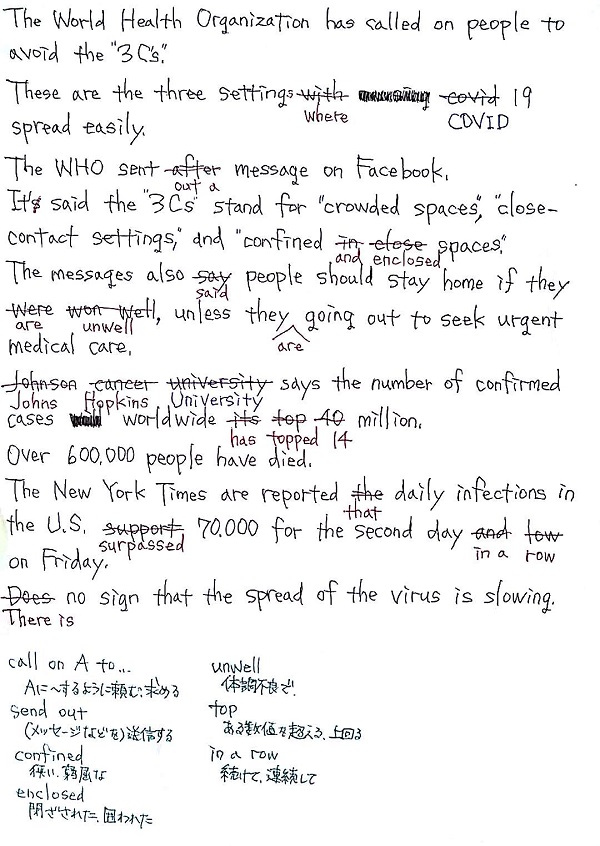 The World Health Organization has called on people to
avoid the "3C's."
These are the three settings with covid 19
where COVID
spread easily.
The WHO sent after message on Facebook.
out a
It's said the "3Cs" stand for "crowded spaces", "close-
contact settings," and "confined in close spaces."
and enclosed
The messages also say people should stay home if they
said
were won well, unless they going out to seek urgent
are unwell are
medical care.
Johnson cancer university says the number of confirmed
Johns Hopkins University
cases worldwide its top 40 million.
has topped 14
Over 600,000 people have died.
The New York Times are reported the daily infections in
that
the U.S. support 70.000 for the second day and tow
surpassed in a row
on Friday.
Does no sign that the spread of the virus is slowing.
There is
call on A to...
Aに〜するように頼む、求める
send out
(メッセージなどを)送信する
confined
狭い、窮屈な
enclosed
閉ざされた、囲われた
unwell
体調不良で
top
ある数値を超える、上回る
in a row
続けて、連続して